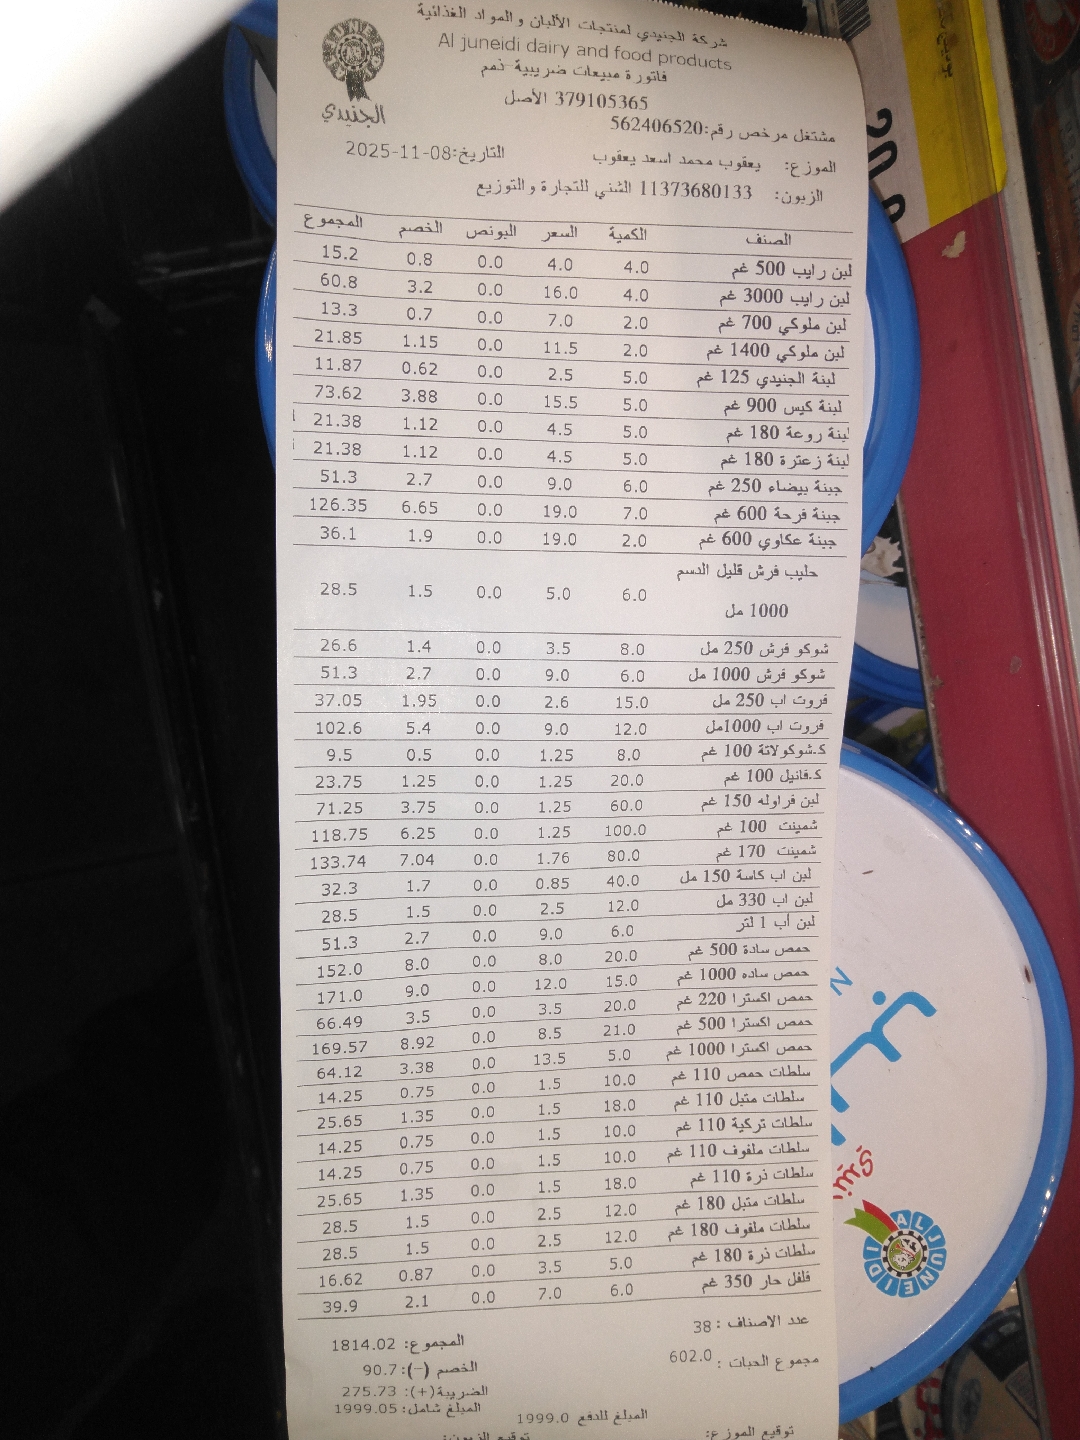 شركة الجنيدي لمنتجات الألبان والمواد الغذائية
Al juneidi dairy and food products
فاتورة مبيعات ضريبية-ذمم
379105365 الأصل
مشتغل مرخص رقم:562406520
الجنيدي
الموزع: يعقوب محمد اسعد يعقوب التاريخ:08-11-2025
الزبون: 11373680133 الشني للتجارة والتوزيع
الصنف الكمية السعر البونص الخصم المجموع
لبن رايب 500 غم 4.0 4.0 0.0 0.8 15.2
لبن رايب 3000 غم 4.0 16.0 0.0 3.2 60.8
لبن ملوكي 700 غم 2.0 7.0 0.0 0.7 13.3
لبن ملوكي 1400 غم 2.0 11.5 0.0 1.15 21.85
لبنة الجنيدي 125 غم 5.0 2.5 0.0 0.62 11.87
لبنة كيس 900 غم 5.0 15.5 0.0 3.88 73.62
لبنة روعة 180 غم 5.0 4.5 0.0 1.12 21.38
لبنة زعترة 180 غم 5.0 4.5 0.0 1.12 21.38
جبنة بيضاء 250 غم 6.0 9.0 0.0 2.7 51.3
جبنة فرحة 600 غم 7.0 19.0 0.0 6.65 126.35
جبنة عكاوي 600 غم 2.0 19.0 0.0 1.9 36.1
حليب فرش قليل الدسم
1000 مل 6.0 5.0 0.0 1.5 28.5
شوكو فرش 250 مل 8.0 3.5 0.0 1.4 26.6
شوكو فرش 1000 مل 6.0 9.0 0.0 2.7 51.3
فروت اب 250 مل 15.0 2.6 0.0 1.95 37.05
فروت اب 1000مل 12.0 9.0 0.0 5.4 102.6
ك.شوكولاتة 100 غم 8.0 1.25 0.0 0.5 9.5
ك.فانيل 100 غم 20.0 1.25 0.0 1.25 23.75
لبن فراوله 150 غم 60.0 1.25 0.0 3.75 71.25
شمينت 100 غم 100.0 1.25 0.0 6.25 118.75
شمينت 170 غم 80.0 1.76 0.0 7.04 133.74
لبن اب كاسة 150 مل 40.0 0.85 0.0 1.7 32.3
لبن اب 330 مل 12.0 2.5 0.0 1.5 28.5
لبن أب 1 لتر 6.0 9.0 0.0 2.7 51.3
حمص سادة 500 غم 20.0 8.0 0.0 8.0 152.0
حمص ساده 1000 غم 15.0 12.0 0.0 9.0 171.0
حمص اكسترا 220 غم 20.0 3.5 0.0 3.5 66.49
حمص اكسترا 500 غم 21.0 8.5 0.0 8.92 169.57
حمص اكسترا 1000 غم 5.0 13.5 0.0 3.38 64.12
سلطات حمص 110 غم 10.0 1.5 0.0 0.75 14.25
سلطات متبل 110 غم 18.0 1.5 0.0 1.35 25.65
سلطات تركية 110 غم 10.0 1.5 0.0 0.75 14.25
سلطات ملفوف 110 غم 10.0 1.5 0.0 0.75 14.25
سلطات ذرة 110 غم 18.0 1.5 0.0 1.35 25.65
سلطات متبل 180 غم 12.0 2.5 0.0 1.5 28.5
سلطات ملفوف 180 غم 12.0 2.5 0.0 1.5 28.5
سلطات ذرة 180 غم 5.0 3.5 0.0 0.87 16.62
فلفل حار 350 غم 6.0 7.0 0.0 2.1 39.9
عدد الاصناف : 38 المجموع: 1814.02
مجموع الحبات : 602.0 الخصم (-): 90.7
الضريبة(+): 275.73
المبلغ شامل: 1999.05
المبلغ للدفع 1999.0
توقيع الموزع: توقيع الزبون:
AL JUNEIDI